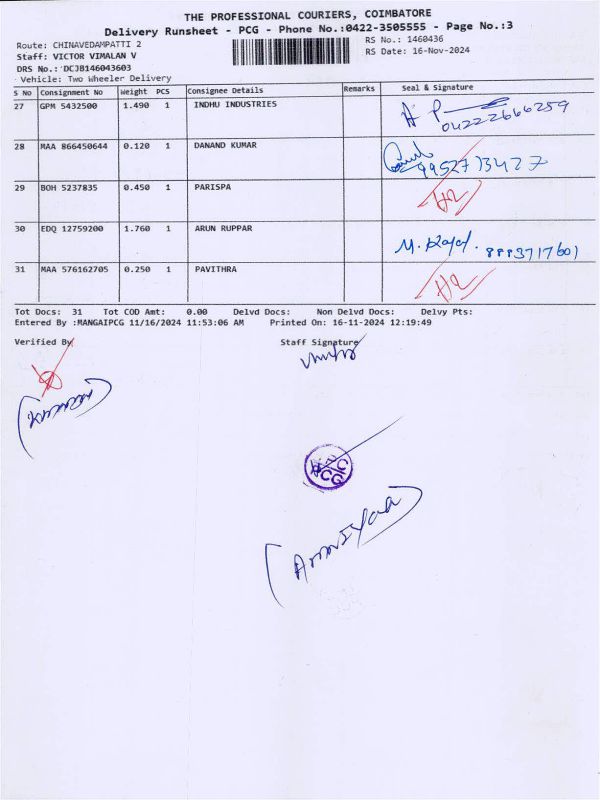 THE PROFESSIONAL COURIERS, COIMBATORE
Delivery Runsheet - PCG - Phone No.:0422-3505555 - Page No.:3
Route: CHINAVEDAMPATTI 2 RS No.: 1460436
Staff: VICTOR VIMALAN V RS Date: 16-Nov-2024
DRS No.: DCJB146043603
Vehicle: Two Wheeler Delivery
S No Consignment No Weight PCS Consignee Details Remarks Seal & Signature
27 GPM 5432500 1.490 1 INDHU INDUSTRIES
04222666259
28 MAA 866450644 0.120 1 DANAND KUMAR
9952713427
29 BOH 5237835 0.450 1 PARISPA H2
30 EDQ 12759200 1.760 1 ARUN RUPPAR
8883717601
31 MAA 576162705 0.250 1 PAVITHRA H2
Tot Docs: 31 Tot COD Amt: 0.00 Delvd Docs: Non Delvd Docs: Delvy Pts:
Entered By :MANGAIPCG 11/16/2024 11:53:06 AM Printed On: 16-11-2024 12:19:49
Verified By Staff Signature